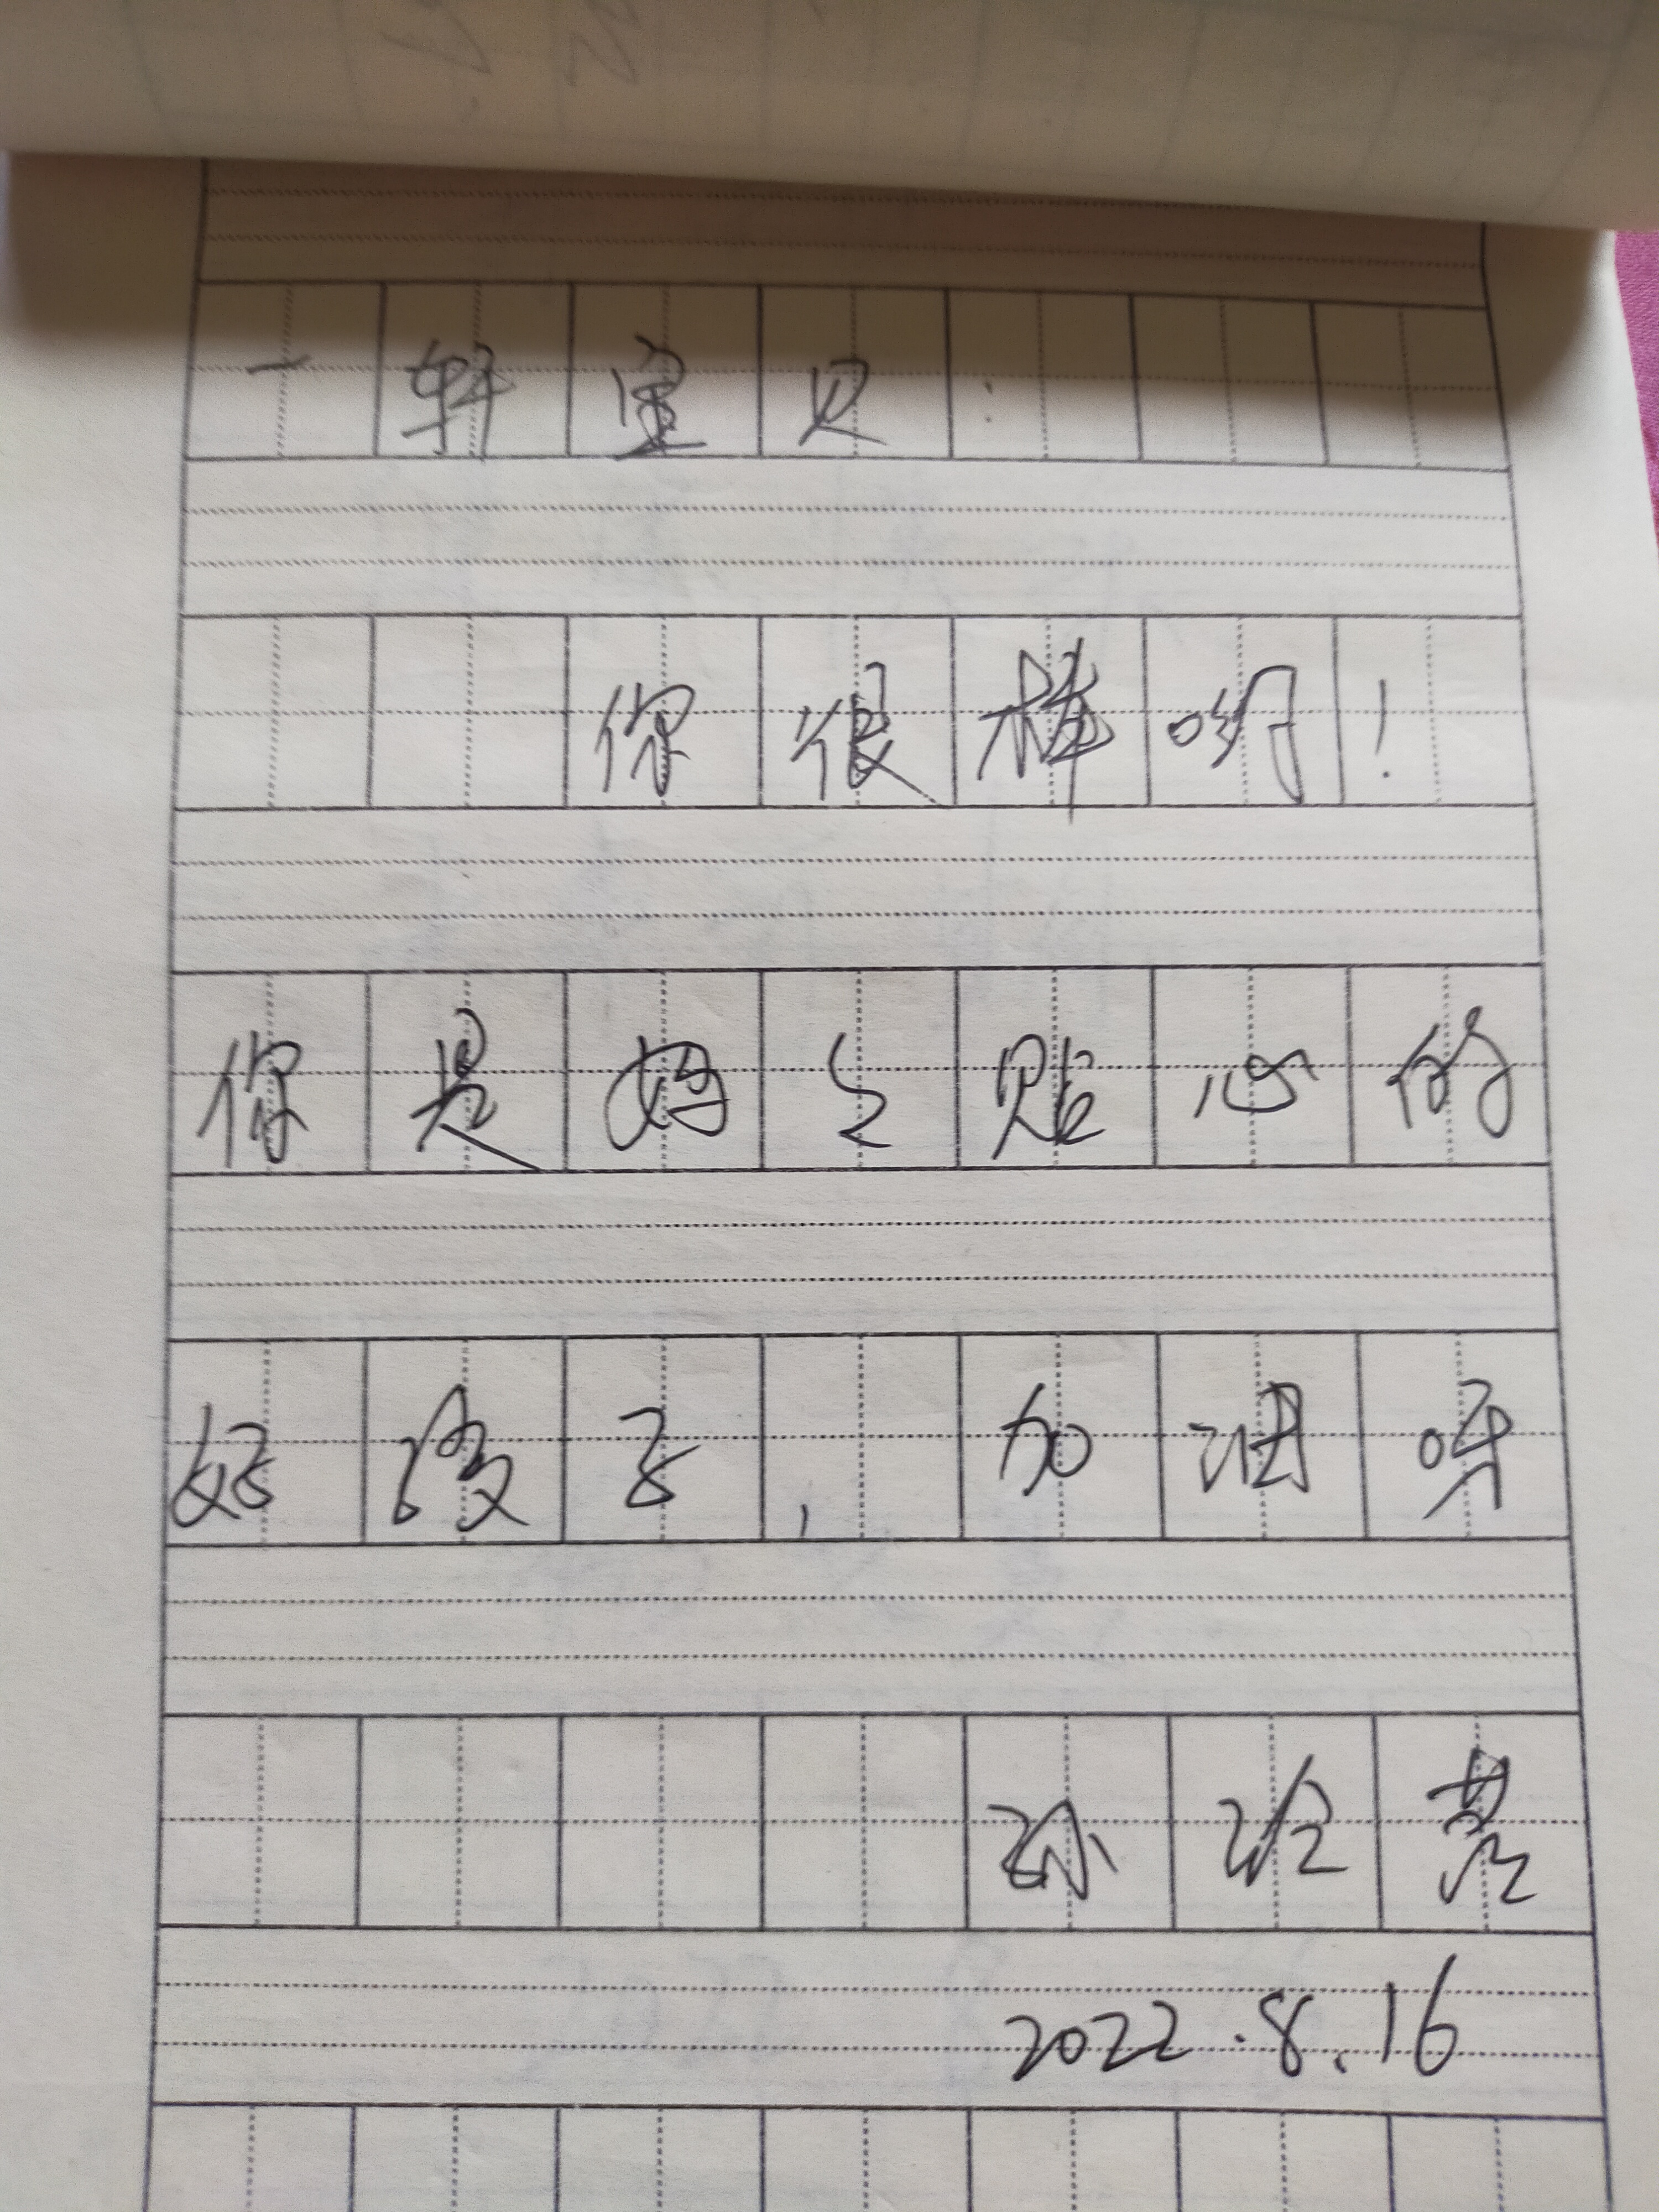 一轩宝贝：
你很棒哟！
你是妈々贴心的
好孩子，加油呀
孙
2022.8.16